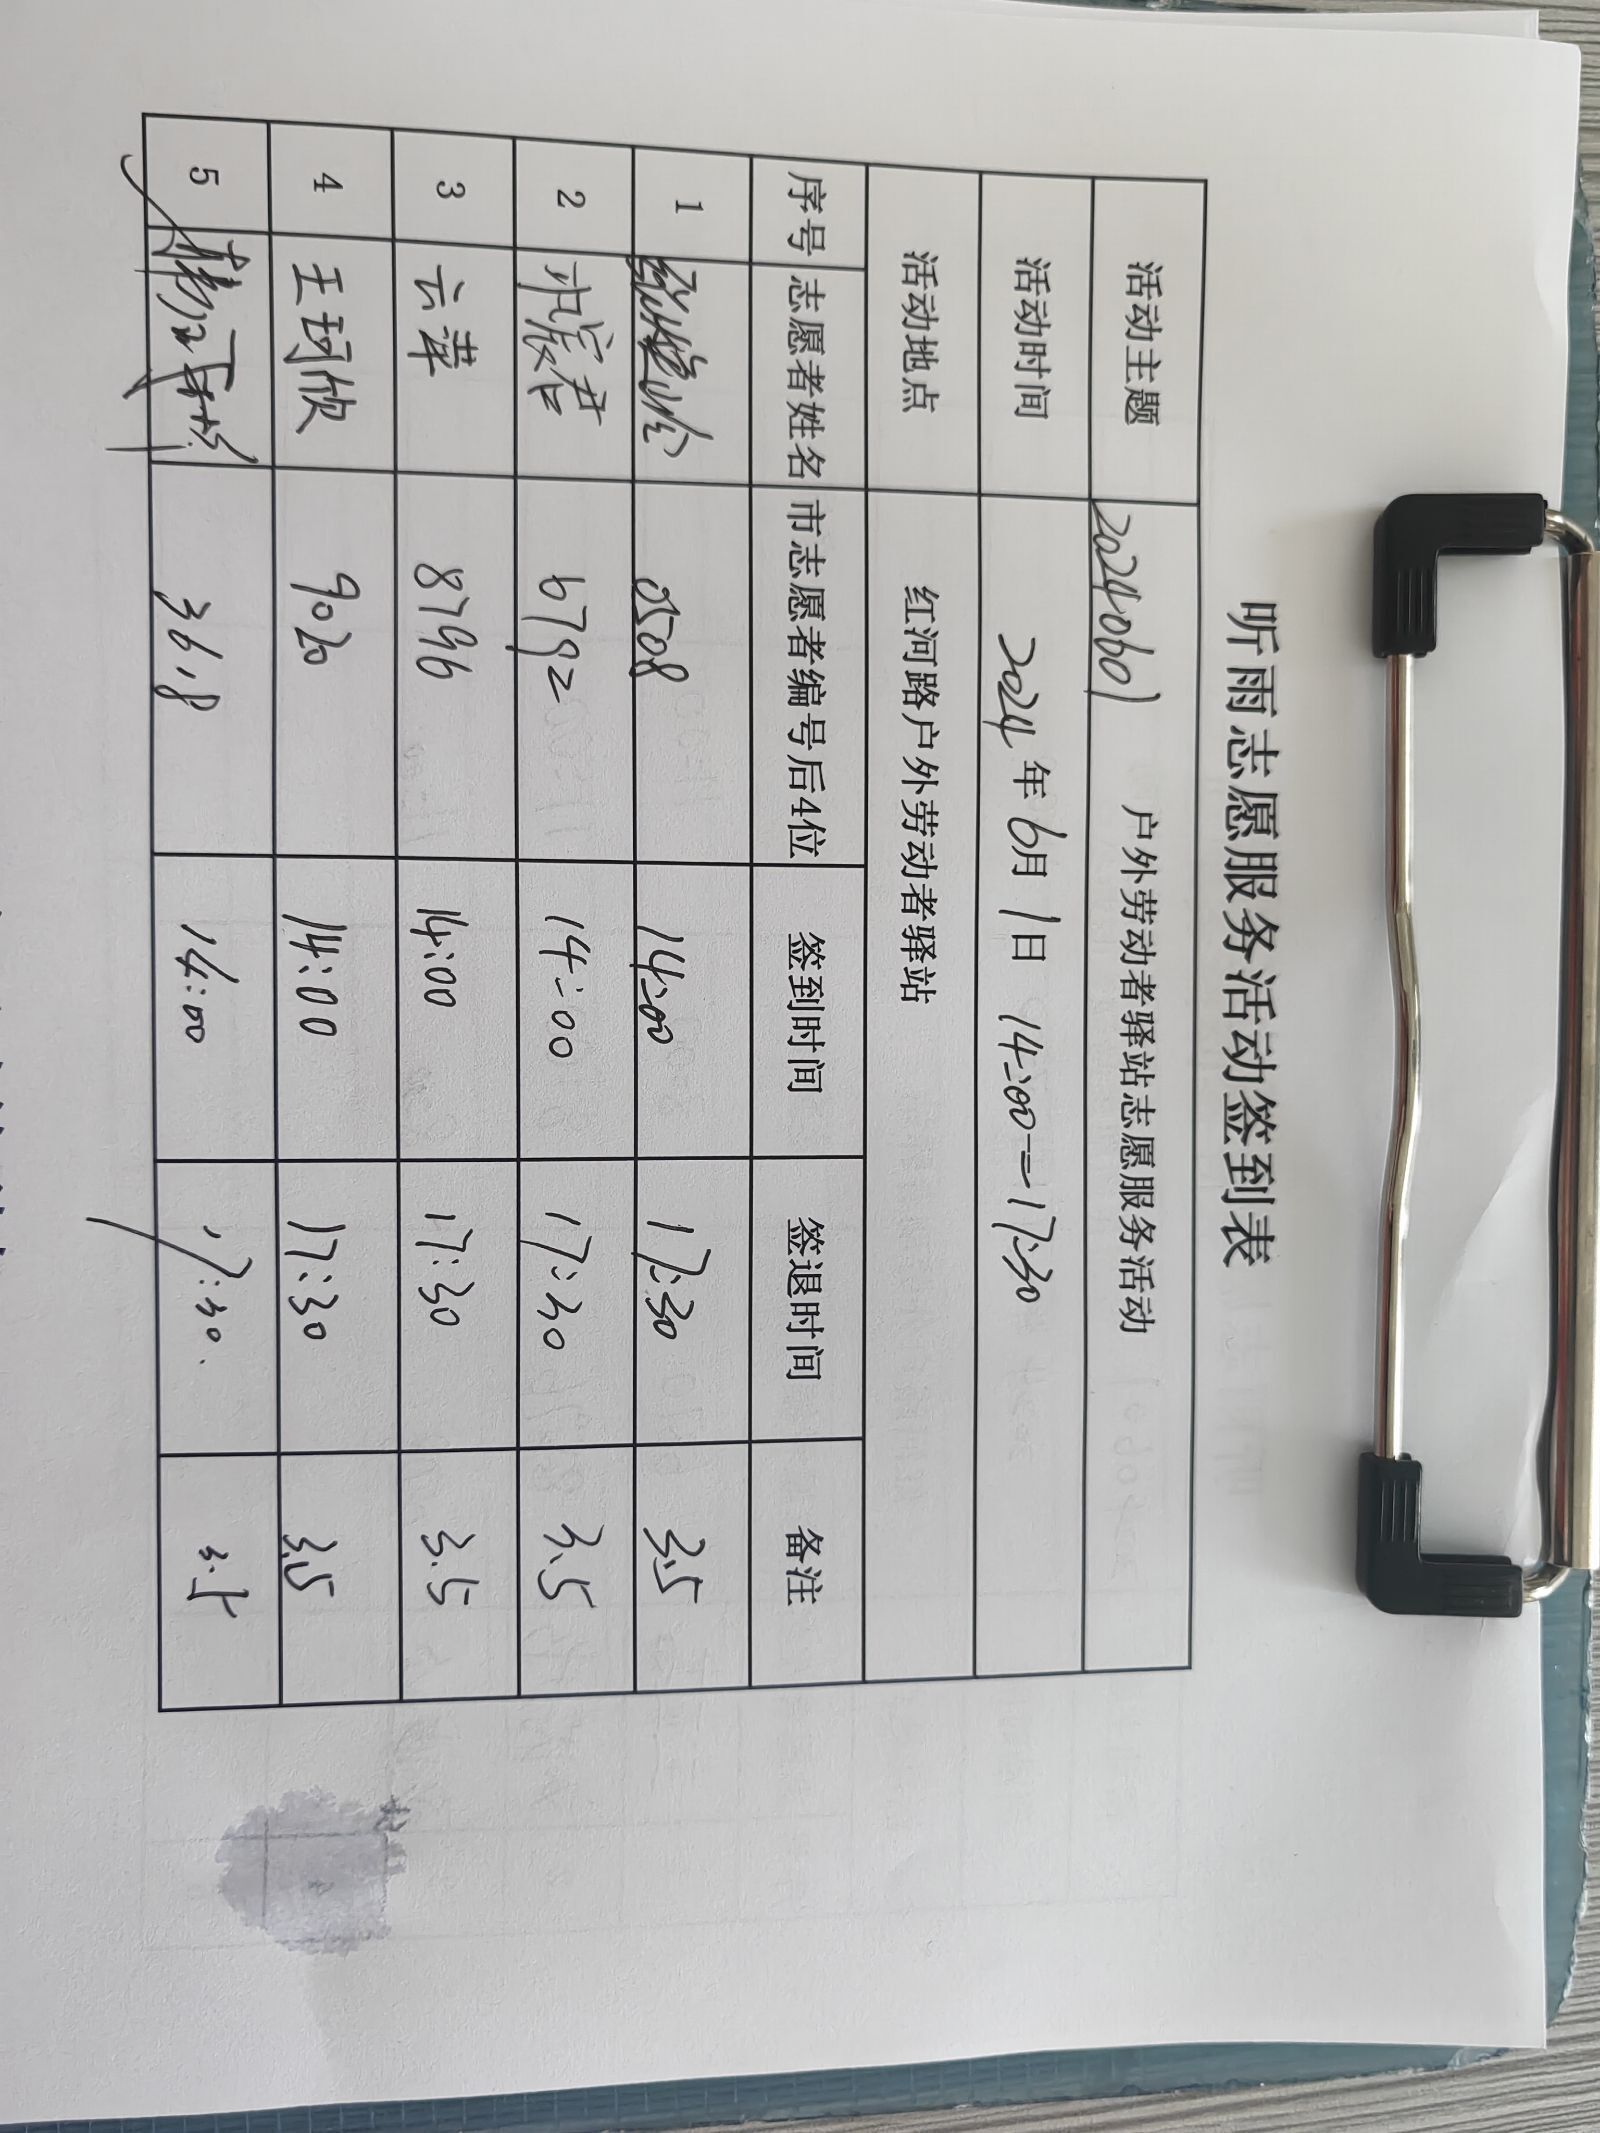 听雨志愿服务活动签到表
活动主题 20240601 户外劳动者驿站志愿服务活动
活动时间 2024年6月1日 14:00—17:30
活动地点 红河路户外劳动者驿站
序号 志愿者姓名 市志愿者编号后4位 签到时间 签退时间 备注
1 0508 14:00 17:30 3.5
2 6792 14:00 17:30 3.5
3 8796 14:00 17:30 3.5
4 王珂欣 9020 14:00 17:30 3.5
5 3618 14:00 17:30. 3.5